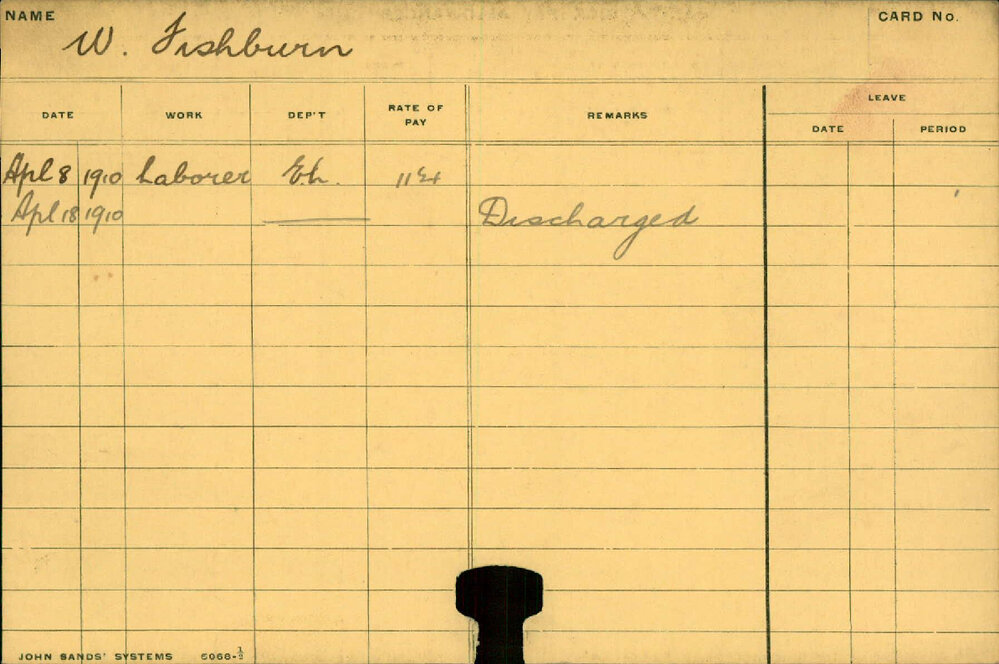 NAME W. Fishburn CARD No.
DATE WORK DEP'T RATE OF PAY REMARKS LEAVE
DATE PERIOD
Apl 8 1910 Laborer
Apl 18 1910 Discharged
JOHN SANDS' SYSTEMS 6068-½